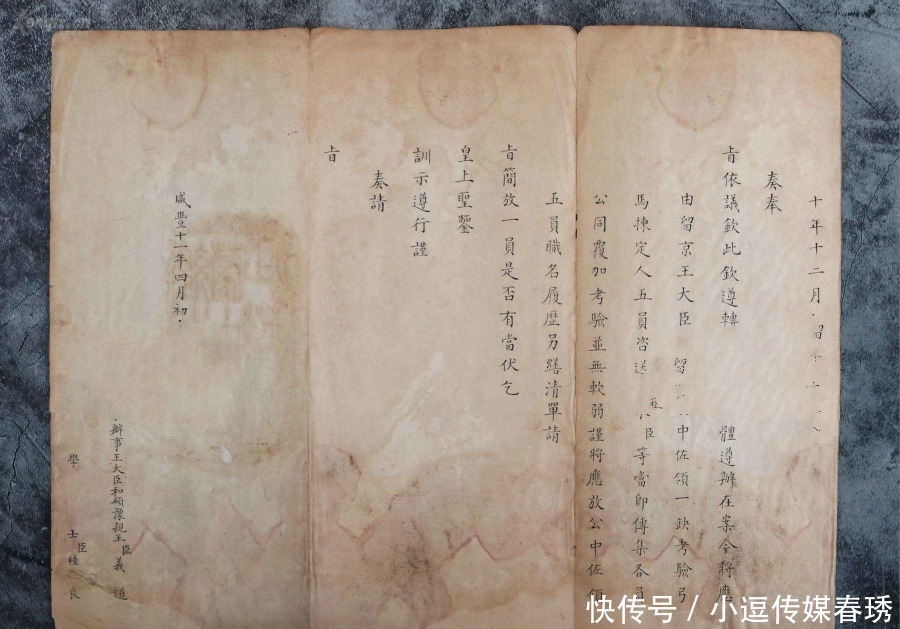 十年十二月 留
奏奉
旨依議欽此欽遵轉 體遵辦在案今將應
由留京王大臣 留 中佐領一缺考驗弓
馬揀定人五員咨送 臣等當即傳集各員
公同覆加考驗並無軟弱謹將應放公中佐領
五員職名履歷另繕清單請
旨簡放一員是否有當伏乞
皇上聖鑒
訓示遵行謹
奏請
旨
咸豐十一年四月初
辦事王大臣和碩豫親王臣義道
學士臣桂良
快传号 / 小逗传媒春琇